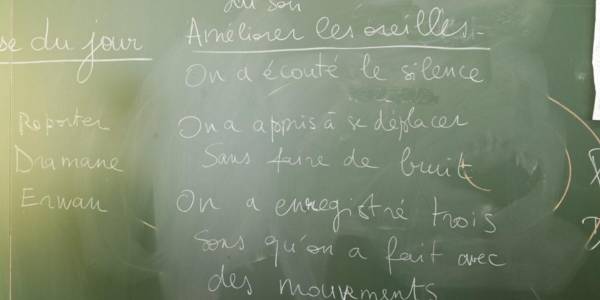 du son
se du jour
Améliorer les oreilles.
On a écouté le silence
Reporter
Dramane
Erwan
On a appris à se déplacer
Sans faire de bruit
On a enregistré trois
sons qu'on a fait avec
des mouvements